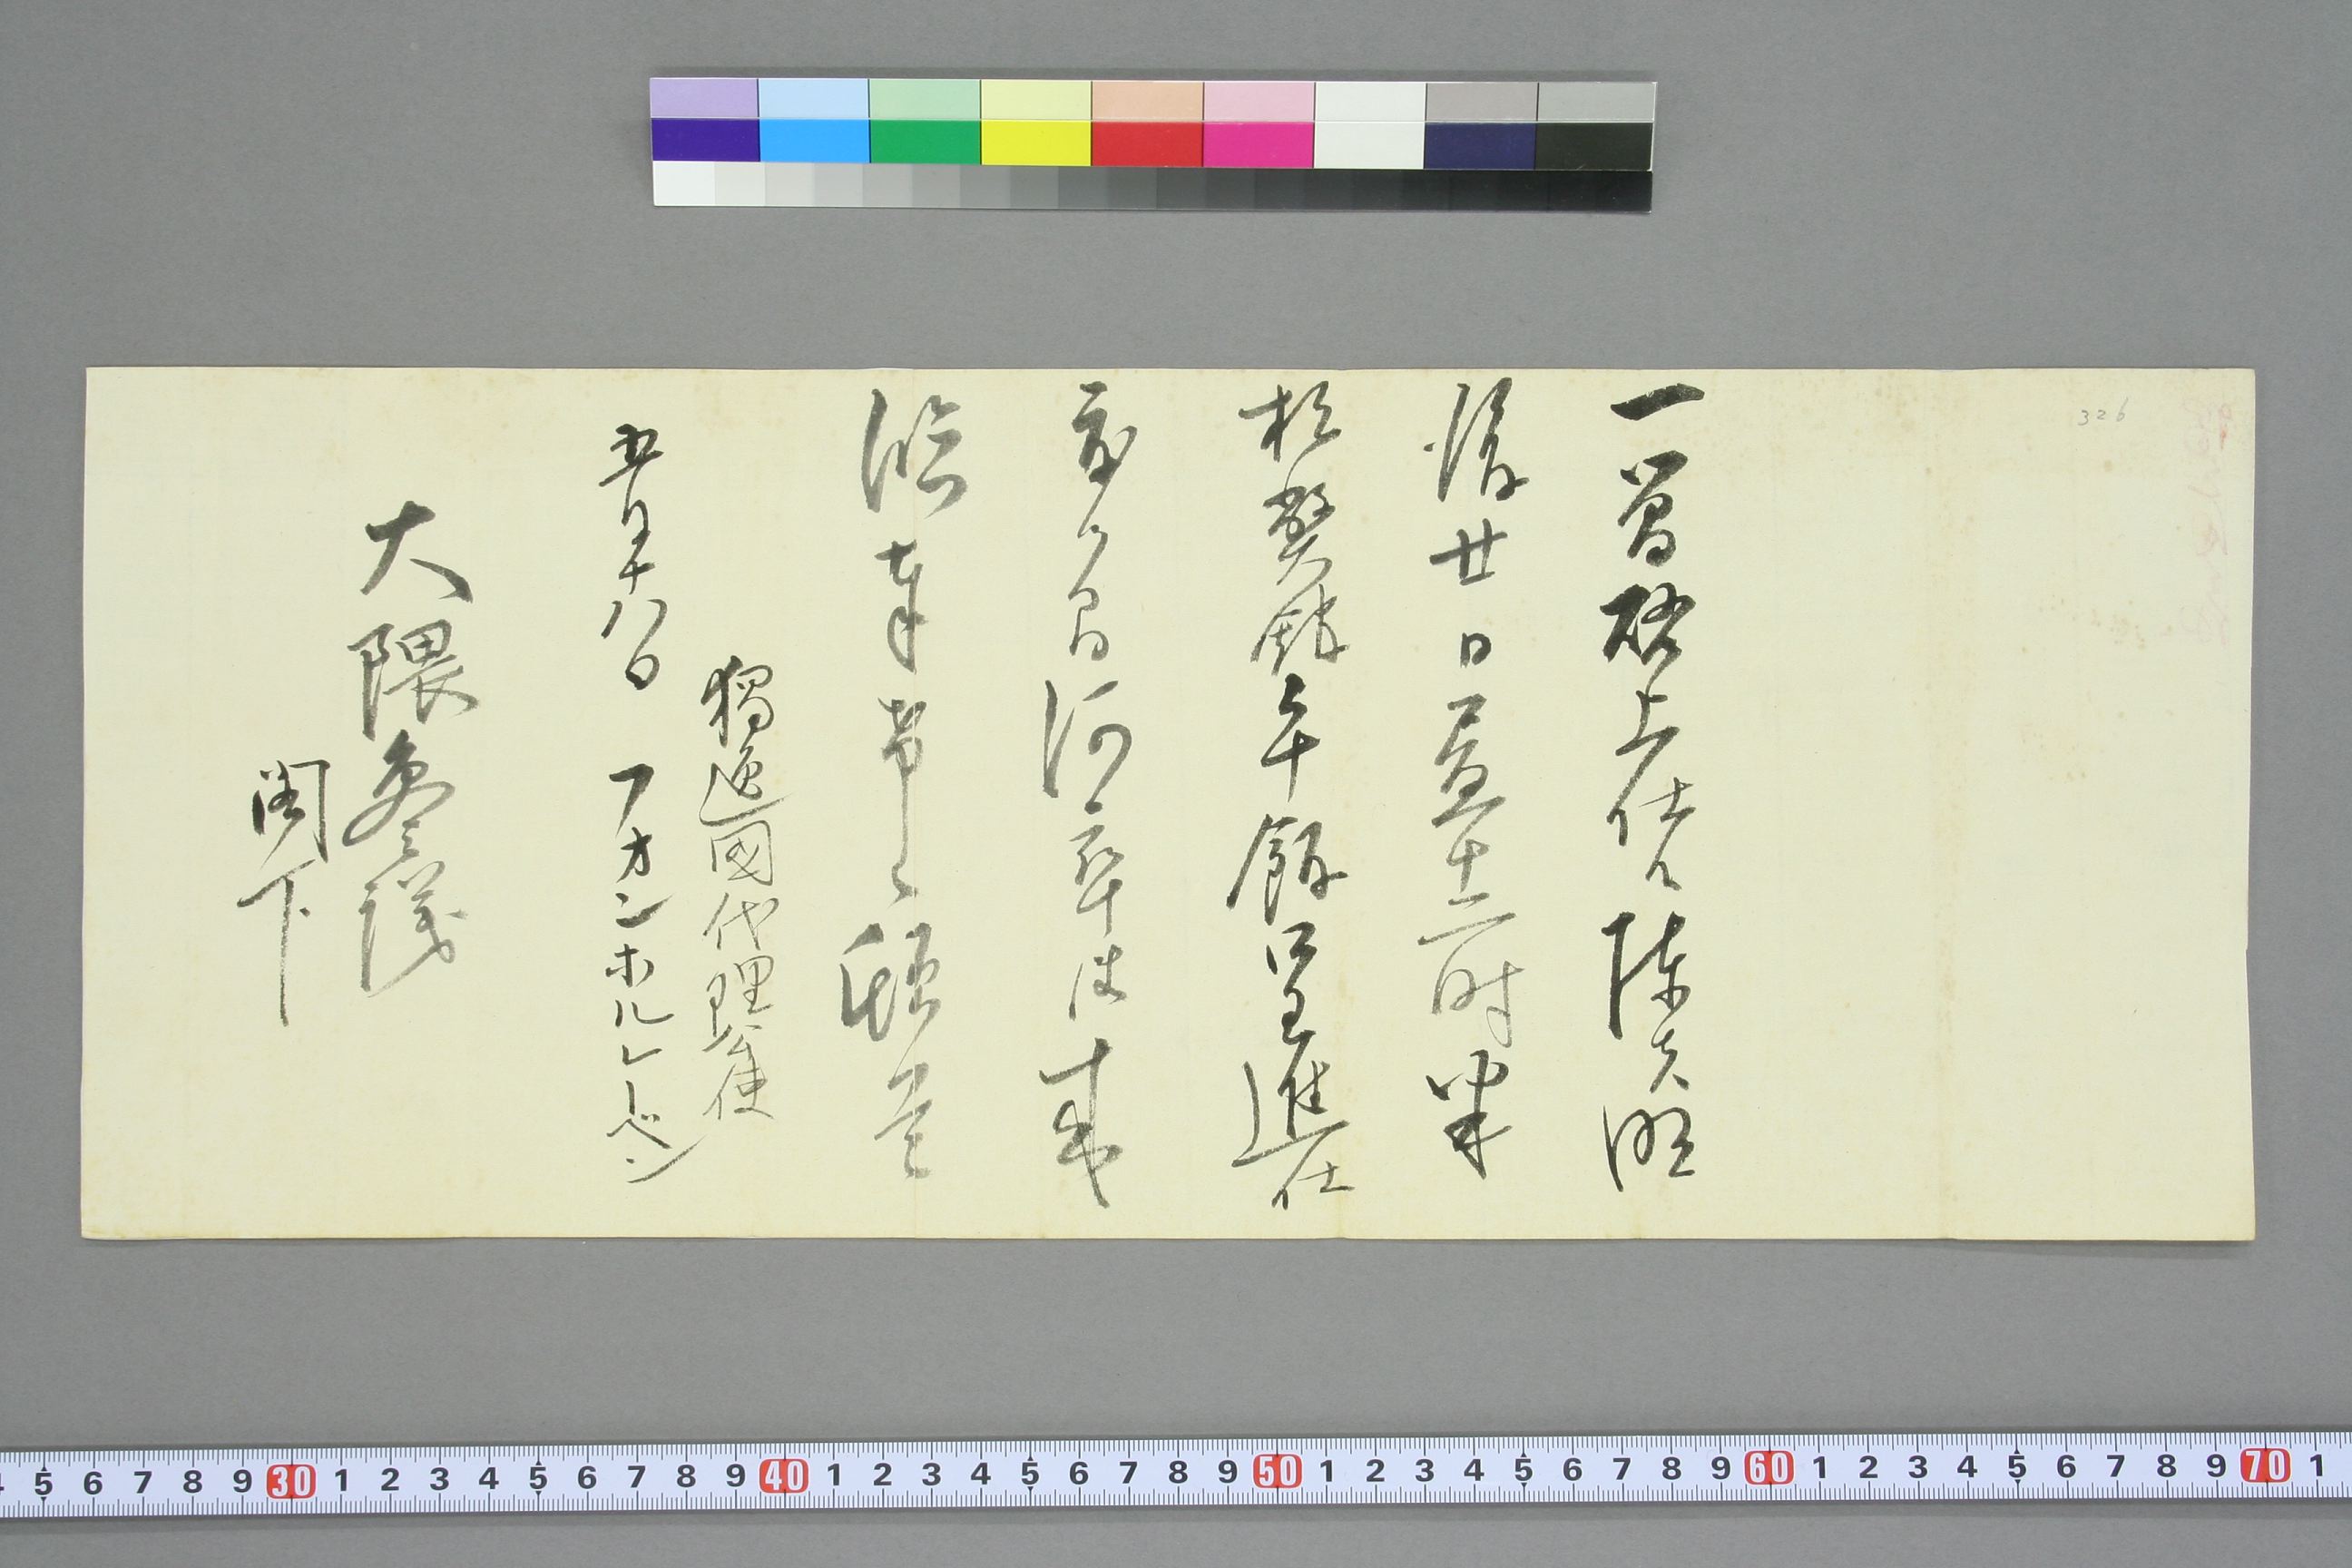 326
一簡啓上仕候陳者明
後廿日昼十二時半
於弊館午餐呈進仕
度候間何卒御来
臨奉希候頓首
獨逸國代理公使
五月十八日 フオンホルレーベン
大隈参議
閣下
5 6 7 8 9 30 1 2 3 4 5 6 7 8 9 40 1 2 3 4 5 6 7 8 9 50 1 2 3 4 5 6 7 8 9 60 1 2 3 4 5 6 7 8 9 70 1